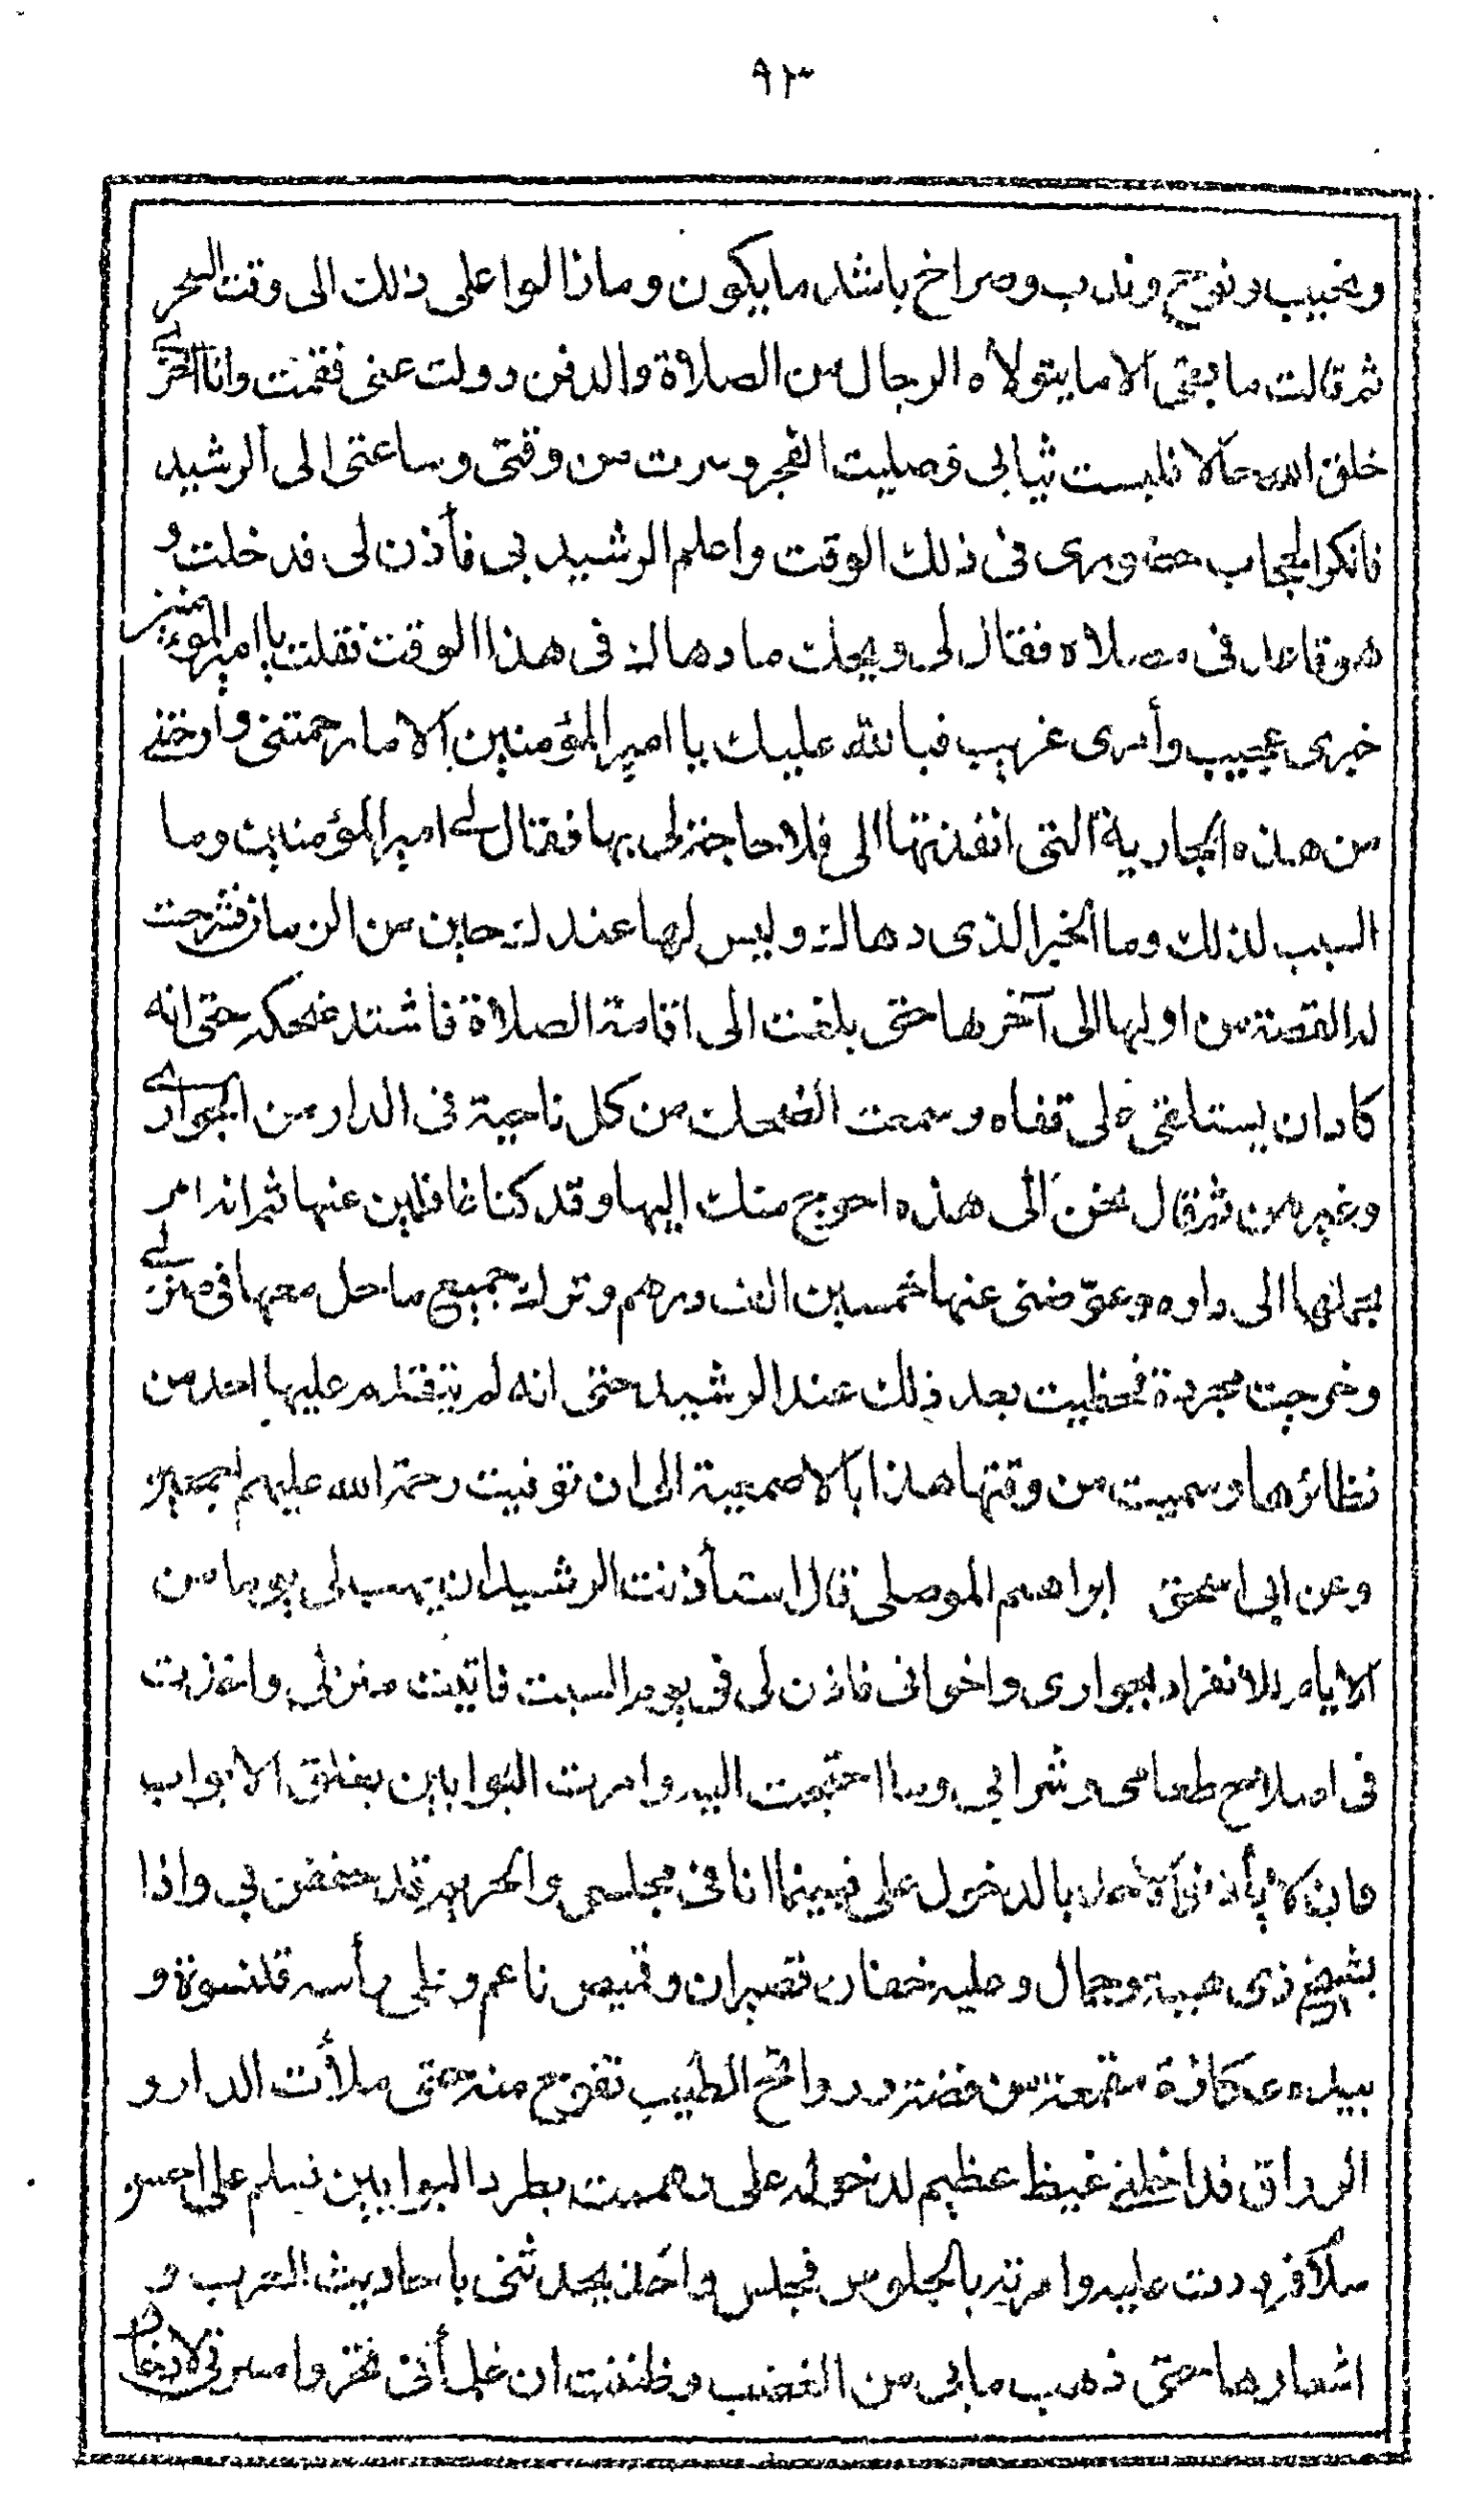 ٩٢
ونحيب ونوح وندب وصراخ باشد مايكون ومازالوا على ذلك الى وقت السحر
ثم قالت ما بقى الا ما يتولاه الرجال من الصلاة والدفن وولت عنى فقمت وانا اخزى
خلق الله حالا فلبست ثيابى وصليت الفجر وسرت من وقتى وساعتى الى الرشيد
فانكر الحجاب حضورى فى ذلك الوقت واعلم الرشيد بى فأذن لى فدخلت و
هو قاعد فى مصلاه فقال لى ويحك ما دهاك فى هذا الوقت فقلت يا امير المؤمنين
خبرى عجيب وأمرى غريب فبالله عليك يا امير المؤمنين الا ما رحمتنى وارحتنى
من هذه الجارية التى انفذتها الى فلا حاجة لى بها فقال لى امير المؤمنين وما
السبب لذلك وما الخبر الذى دهاك وليس لها عندك حين من الزمان فشرحت
له القصة من اولها الى آخرها حتى بلغت الى اقامة الصلاة فاشتد ضحكه حتى انه
كاد ان يستلقى على قفاه وسمعت الضحك من كل ناحية فى الدار من الجوارى
وغيرهن ثم قال نحن الى هذه احوج منك اليها وقد كنا غافلين عنها ثم انه امر
بحملها الى داره وعوّضنى عنها خمسين الف درهم وترك جميع ما حمل معها فى منزلى
وخرجت مجردة فحظيت بعد ذلك عند الرشيد حتى انه لم يتقدم عليها احد من
نظائرها وسميت من وقتها هذا بالاصمعية الى ان توفيت رحمة الله عليهم اجمعين
وعن ابى اسحق ابراهيم الموصلى قال استأذنت الرشيد ان يهب لى يوما من
الايام للانفراد بجوارى واخوانى فاذن لى فى يوم السبت فاتيت منزلى واخذت
فى اصلاح طعامى وشرابى وما احتجت اليه وامرت البوابين بغلق الابواب
وان لا يأذنوا لاحد بالدخول على فبينما انا فى مجلسى والحريم قد حففن بى واذا
بشيخ ذى هيبة وجمال وعليه خفان قصيران وقميص ناعم وعلى رأسه قلنسوة و
بيده عكازة مقمعة من فضة وروائح الطيب تفوح منه حتى ملأت الدار و
الرواق فداخلنى غيظ عظيم لدخوله على وهممت بطرد البوابين فسلم على احسن
سلام فرددت عليه وامرته بالجلوس فجلس واخذ يحدثنى باحاديث العرب و
اشعارها حتى ذهب ما بى من الغضب وظننت ان غلمانى تحروا مسرتى لادخال